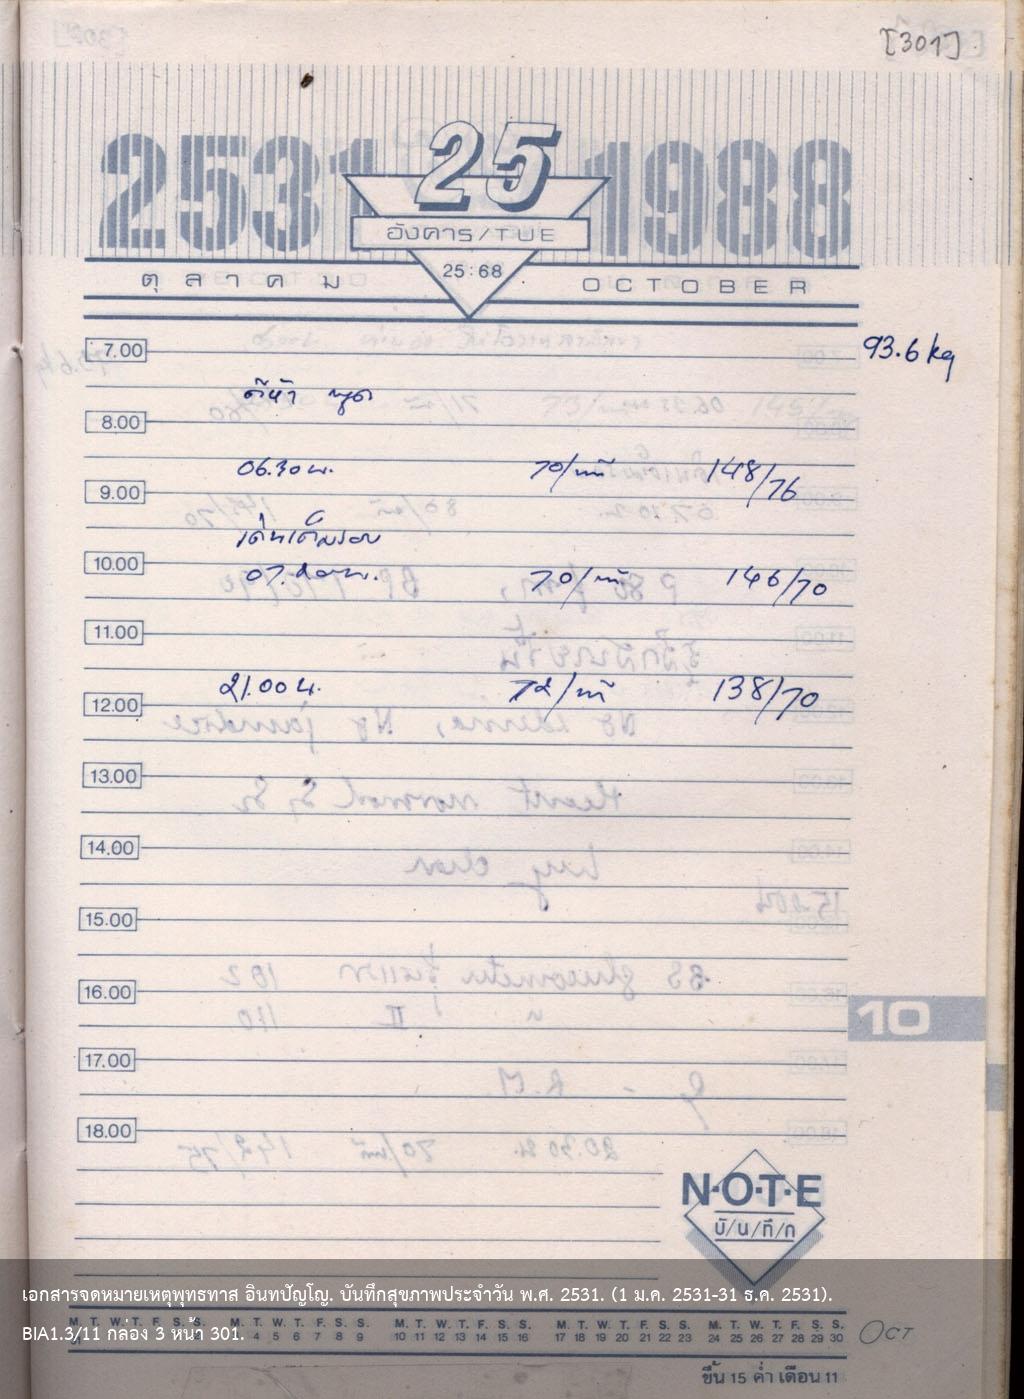 [301]
2531 25 1988
อังคาร/TUE
25:68
ตุลาคม OCTOBER
7.00 93.6 kg
ตีห้า พูด
8.00
06.30 น. 70/นาที 148/76
9.00
เดินเต็มรอบ
10.00
07.20 น. 70/นาที 146/70
11.00
21.00 น. 72/นาที 138/70
12.00
13.00
14.00
15.00
16.00
10
17.00
18.00
N·O·T·E
บั/น/ทึ/ก
เอกสารจดหมายเหตุพุทธทาส อินทปัญโญ. บันทึกสุขภาพประจำวัน พ.ศ. 2531. (1 ม.ค. 2531-31 ธ.ค. 2531).
BIA1.3/11 กล่อง 3 หน้า 301.
M. T. W. T. F. S. S. M. T. W. T. F. S. S. M. T. W. T. F. S. S. M. T. W. T. F. S. S.
4 5 6 7 8 9 10 11 12 13 14 15 16 17 18 19 20 21 22 23 24 25 26 27 28 29 30 OCT
ขึ้น 15 ค่ำ เดือน 11